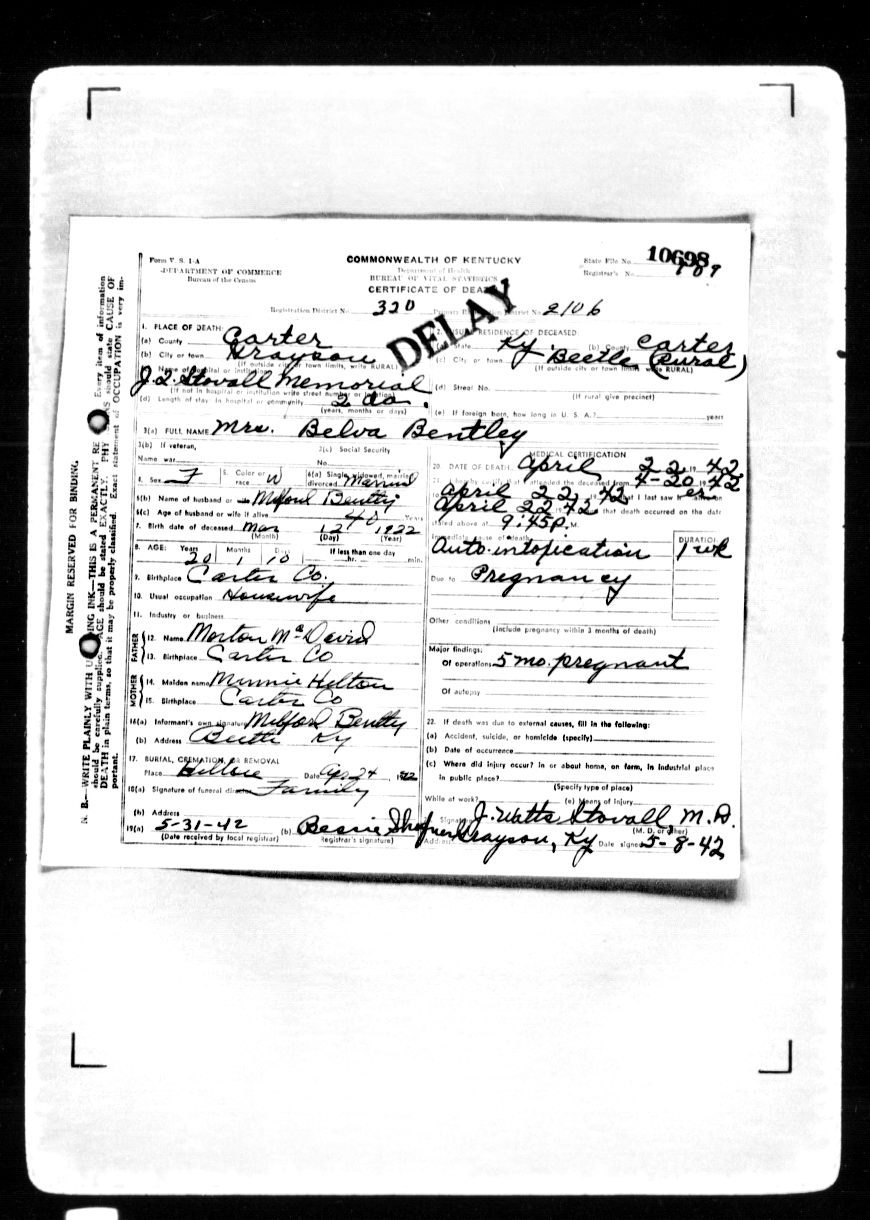 Form V. S. 1-A
DEPARTMENT OF COMMERCE
Bureau of the Census
COMMONWEALTH OF KENTUCKY
Department of Health
BUREAU OF VITAL STATISTICS
CERTIFICATE OF DEATH
State File No. 10698
Registrar's No.
Registration District No. 320 Primary Registration District No. 2106
DELAY
MARGIN RESERVED FOR BINDING.
N. B.—WRITE PLAINLY WITH INK—THIS IS A PERMANENT Every item of information
should be carefully supplied. AGE should be stated EXACTLY. should state CAUSE OF
DEATH in plain terms, so that it may be properly classified. Exact statement of OCCUPATION is very im-
portant.
1. PLACE OF DEATH:
(a) County Carter
(b) City or town Grayson
(If outside city or town limits, write RURAL)
Name of hospital or institution
J. Q. Stovall Memorial
(If not in hospital or institution write street number or location)
(d) Length of stay: In hospital or community 2 da.
(years, months or days)
2. USUAL RESIDENCE OF DECEASED
(a) State Ky. (b) County Carter
(c) City or town Beetle (Rural)
(If outside city or town limits write RURAL)
(d) Street No.
(If rural give precinct)
(e) If foreign born, how long in U. S. A.? years
3(a) FULL NAME Mrs. Belva Bentley
3(b) If veteran,
Name war
3(c) Social Security
No.
4. Sex F 5. Color or race W 6(a) Single, widowed, married, divorced Married
6(b) Name of husband or Milford Bentley
6(c) Age of husband or wife if alive 40 Years
7. Birth date of deceased Mar 12 1922
(Month) (Day) (Year)
8. AGE: Years Months Days If less than one day
20 1 10 hr. min.
9. Birthplace Carter Co.
10. Usual occupation Housewife
11. Industry or business
FATHER
12. Name Morton McDavid
13. Birthplace Carter Co
MOTHER
14. Maiden name Minnie Helton
15. Birthplace Carter Co
16(a) Informant's own signature Milford Bentley
(b) Address Beetle Ky
17. BURIAL, CREMATION, OR REMOVAL
Place Date Apr 24, 1942
18(a) Signature of funeral director Family
(b) Address
19(a) 5-31-42 (b) Bessie
(Date received by local registrar) (Registrar's signature)
MEDICAL CERTIFICATION
20. DATE OF DEATH April 22 1942
21. I hereby certify that I attended the deceased from 4-20 1942
to April 22, 1942, that I last saw her alive on
April 22 1942, that death occurred on the date
stated above at 9:45 P. M.
Immediate cause of death DURATION
Auto-intoxication 1 wk
Due to Pregnancy
Other conditions
(Include pregnancy within 3 months of death)
Major findings:
Of operations 5 mo. pregnant
Of autopsy
22. If death was due to external causes, fill in the following:
(a) Accident, suicide, or homicide (specify)
(b) Date of occurrence
(c) Where did injury occur? in or about home, on farm, in industrial place
in public place?
(Specify type of place)
While at work? (e) Means of injury
Signature J. Watts Stovall M. D.
(M. D. or other)
Address Grayson, Ky Date signed 5-8-42